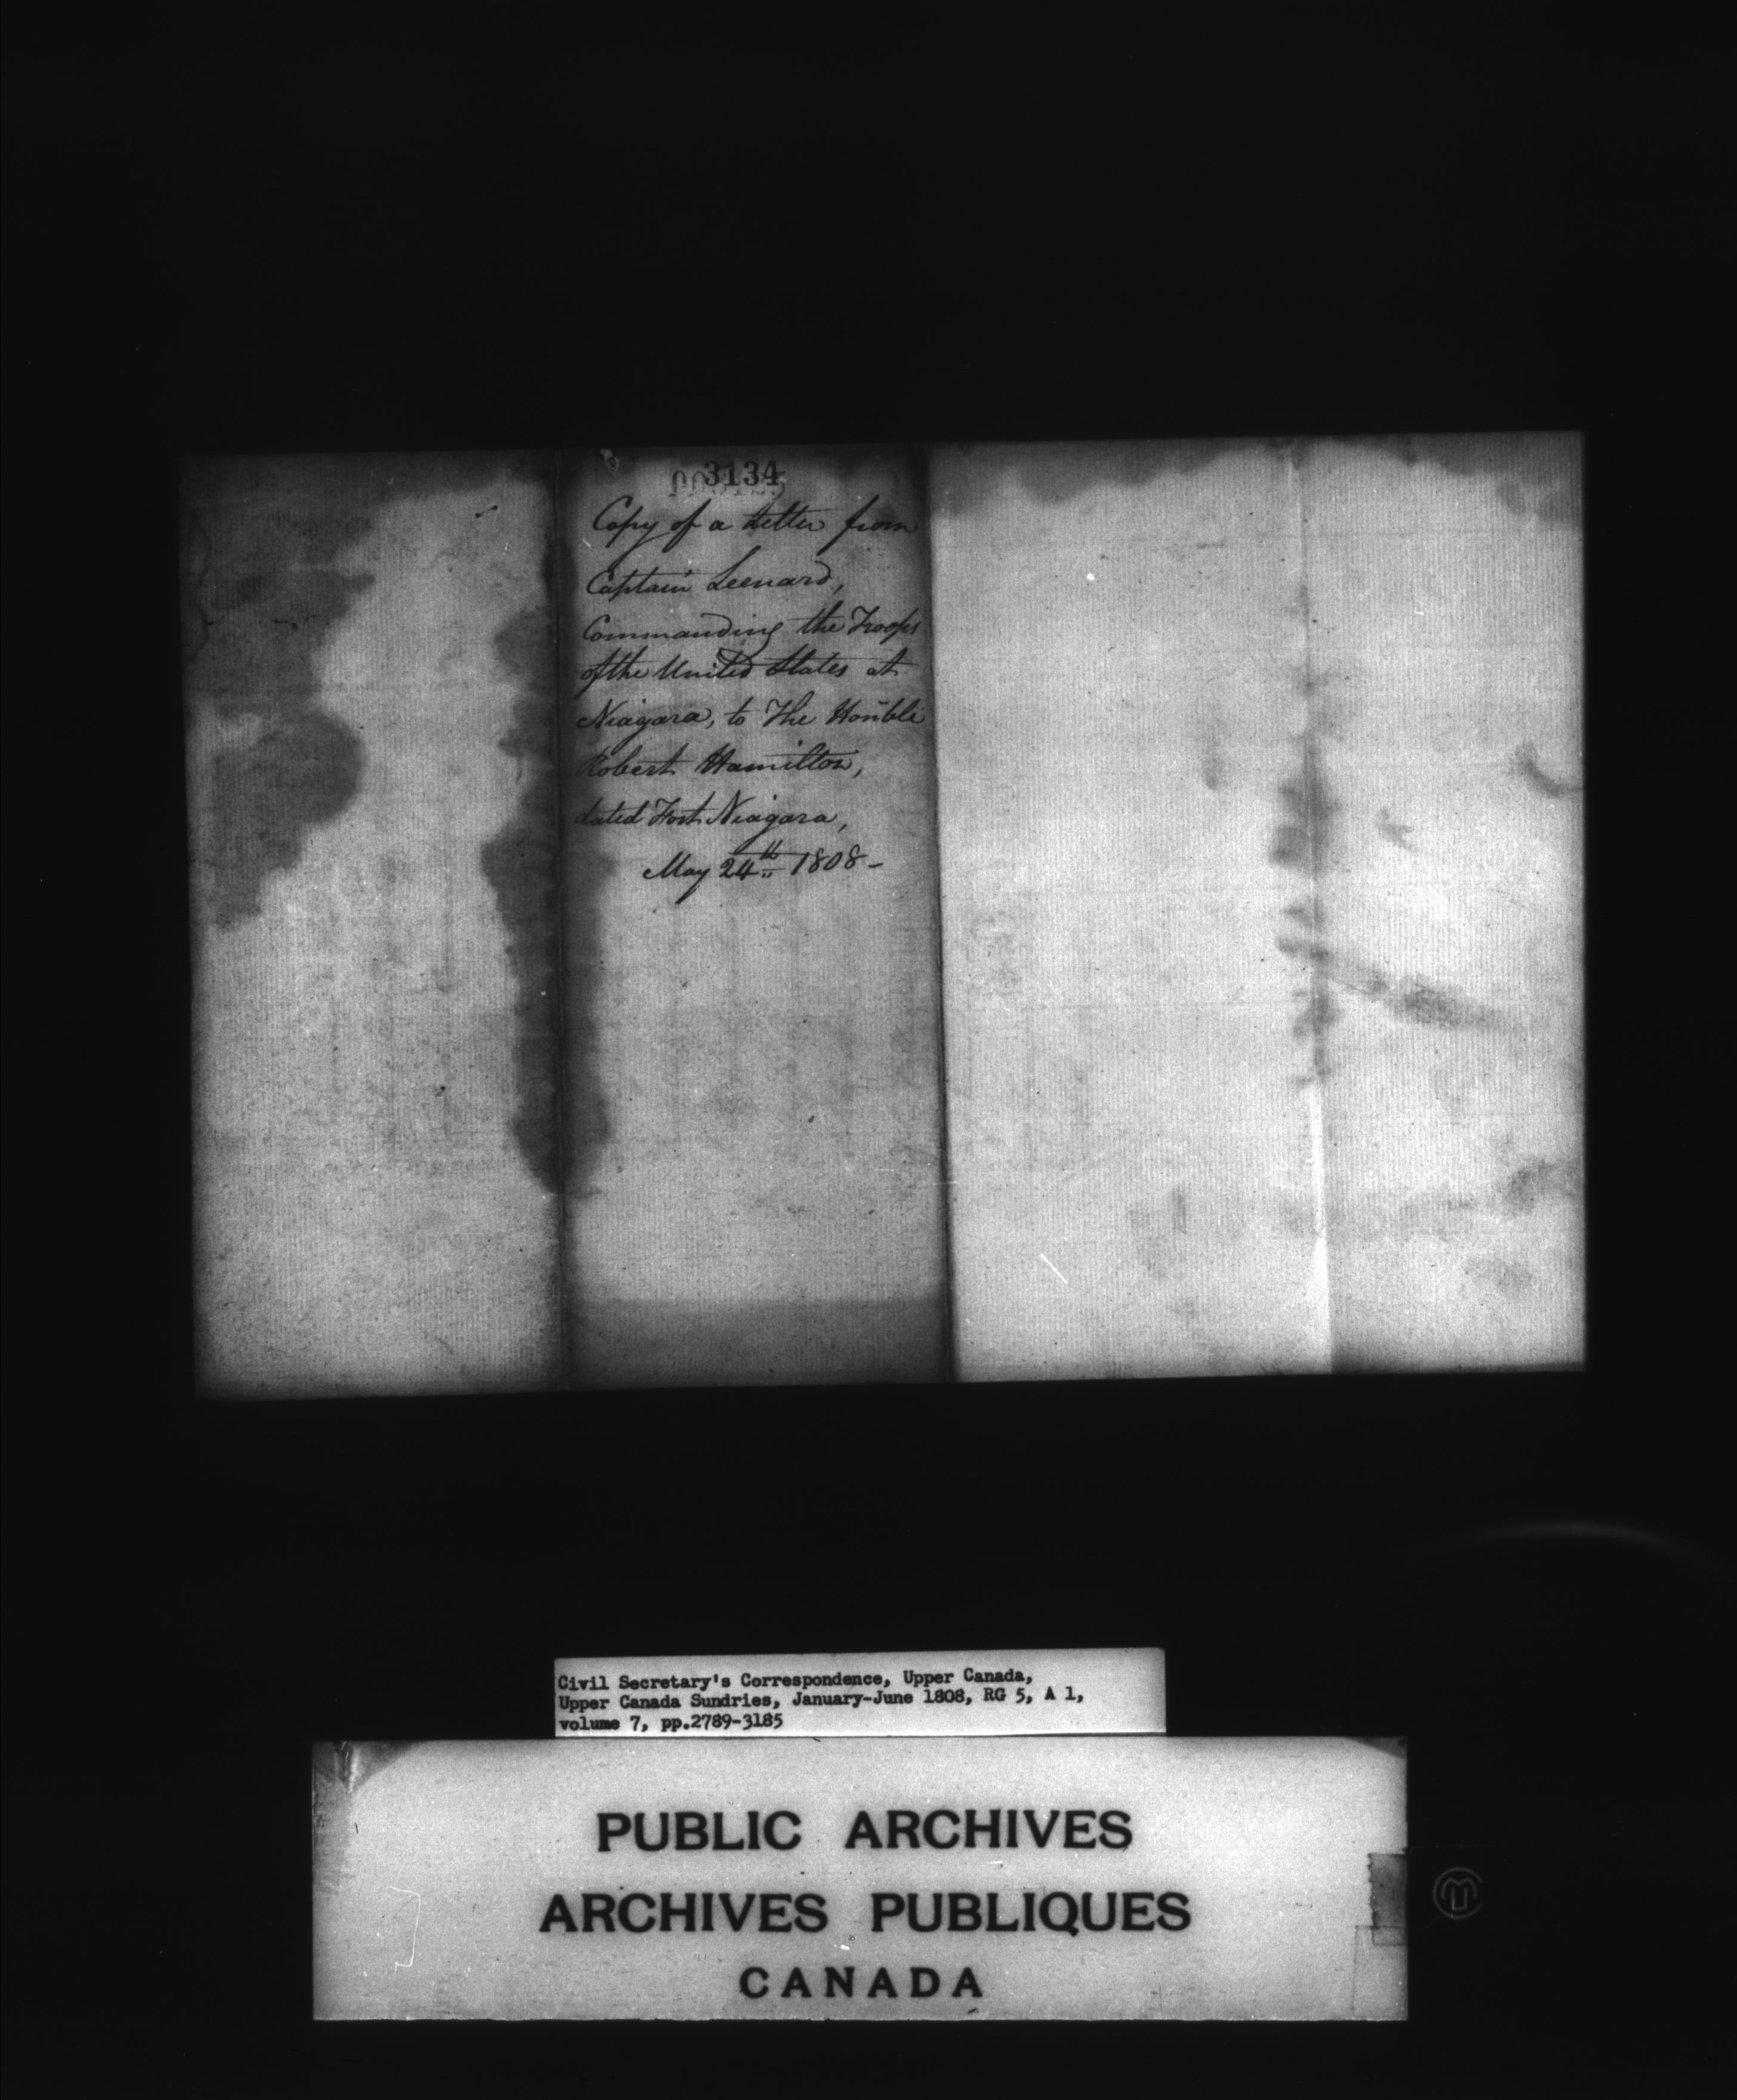 3134
Copy of a Letter from
Captain Leenard,
Commanding the Troops
of the United States at
Niagara, to The Honble
Robert Hamilton,
dated Fort Niagara,
May 24th 1808-
Civil Secretary's Correspondence, Upper Canada,
Upper Canada Sundries, January-June 1808, RG 5, A 1,
volume 7, pp.2789-3185
PUBLIC ARCHIVES
ARCHIVES PUBLIQUES
CANADA